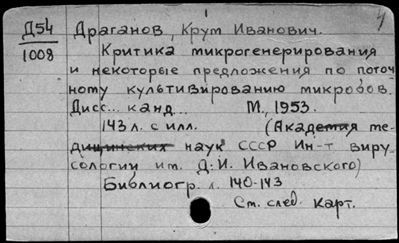 Д54 Драганов, Крум Иванович.
1008 Критика микрогенерирования
и некоторые предложения по поточ
ному культивированию микробов.
Дисс... канд... М., 1953.
143 л. с илл. (Академия ме-
дицинских наук СССР Ин-т виру
сологии им. Д. И. Ивановского)
Библиогр. л. 140-143
См. след. карт.